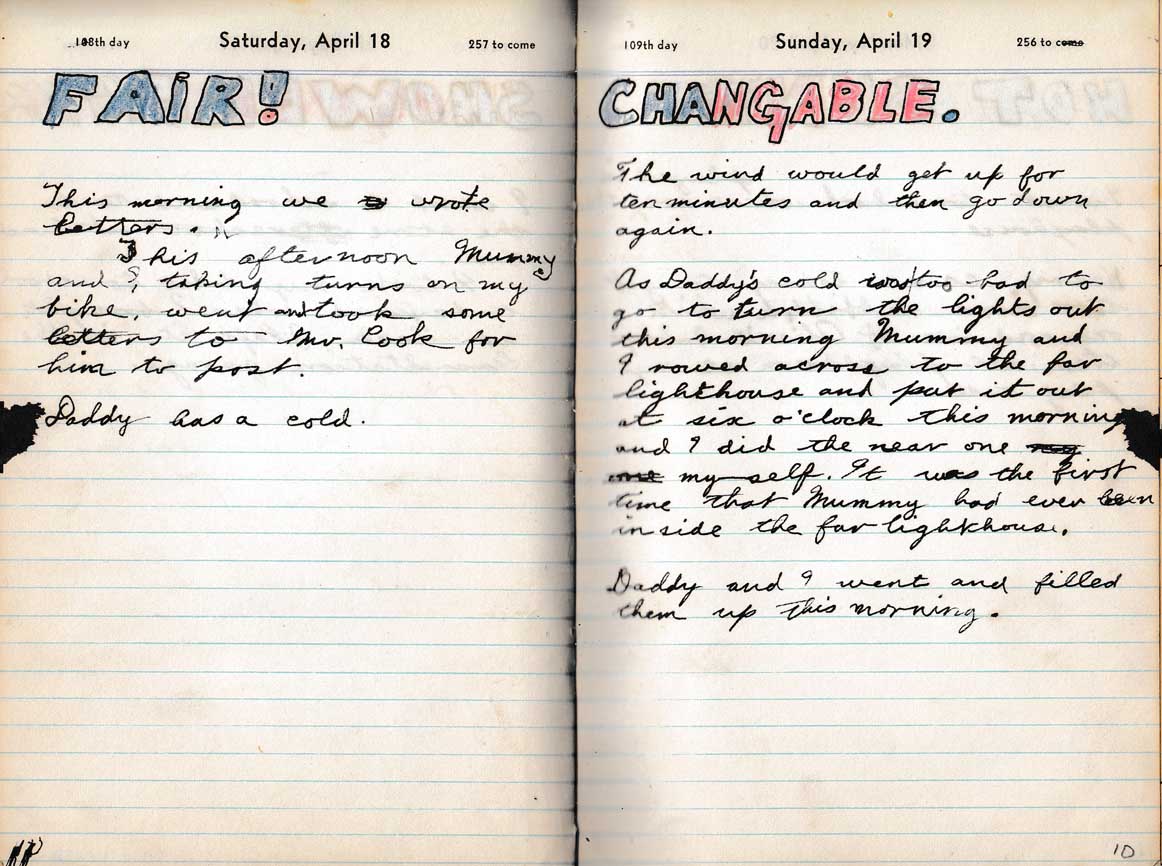 108th day Saturday, April 18 257 to come
FAIR!
This morning we wrote
letters.
This afternoon Mummy
and I, taking turns on my
bike, went and took some
letters to Mr. Cook for
him to post.
Daddy has a cold.
11
109th day Sunday, April 19 256 to come
CHANGABLE.
The wind would get up for
ten minutes and then go down
again.
As Daddy's cold was too bad to
go to turn the lights out
this morning Mummy and
I rowed across to the far
lighthouse and put it out
at six o'clock this morning
and I did the near one my
one my self. It was the first
time that Mummy had ever been
inside the far lighthouse.
Daddy and I went and filled
them up this morning.
10